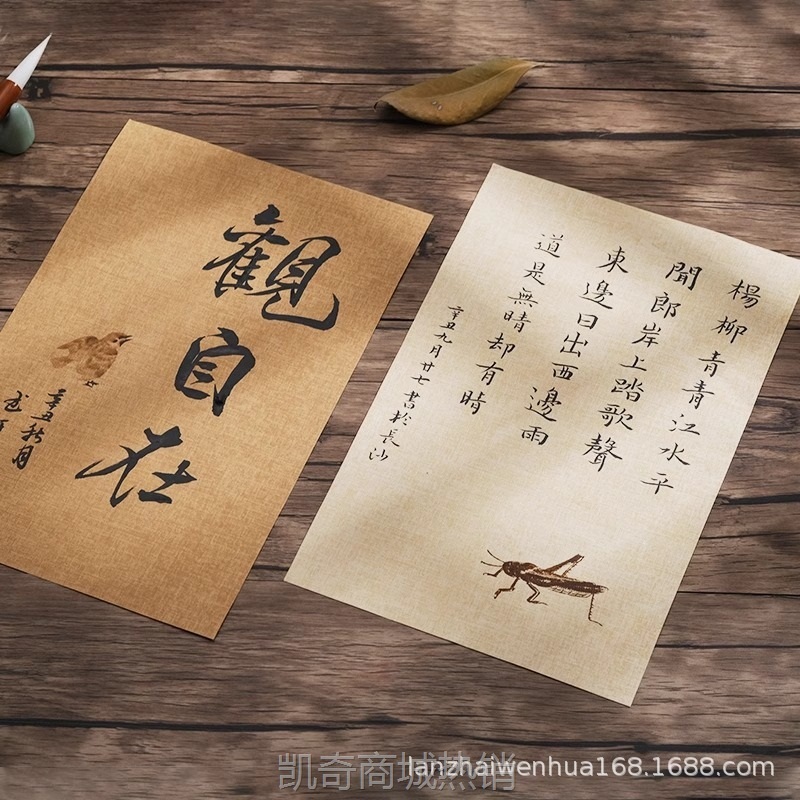 觀自在
辛丑秋月
楊柳青青江水平
聞郎岸上踏歌聲
東邊日出西邊雨
道是無晴却有晴
辛丑九月廿七書於長沙
凯奇商城热销
lanzhaiwenhua168.1688.com